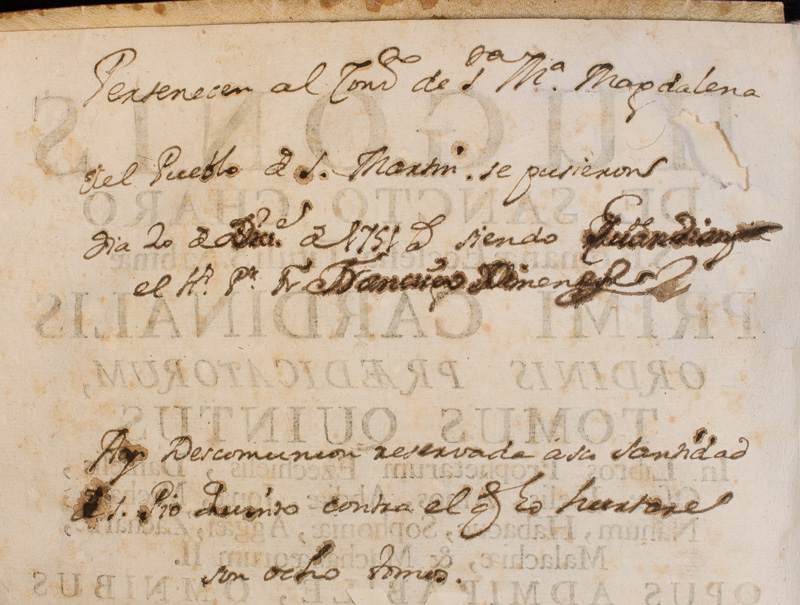 Pertenecen al Conv.to de S.ta M.a Magdalena
del Pueblo de S. Martin. se pusieron
dia 20 de de 1751 as siendo Guardian
el H.o P.e Fr. Francisco Ximenez
Ay Descomunion reservada a su Santidad
de S. Pio Quinto contra el q
son ocho tomos.
HUGONIS
DE SANCTO CHARO
PRIMI CARDINALIS
ORDINIS PRÆDICATORUM,
TOMUS QUINTUS
In Libros Prophetarum Ezechielis, Danielis,
Nahum, Habacuc, Sophoniæ, Aggæi, Zachariæ,
Malachiæ, & Machabæorum II.
OPUS ADMIRABILE, OMNIBUS